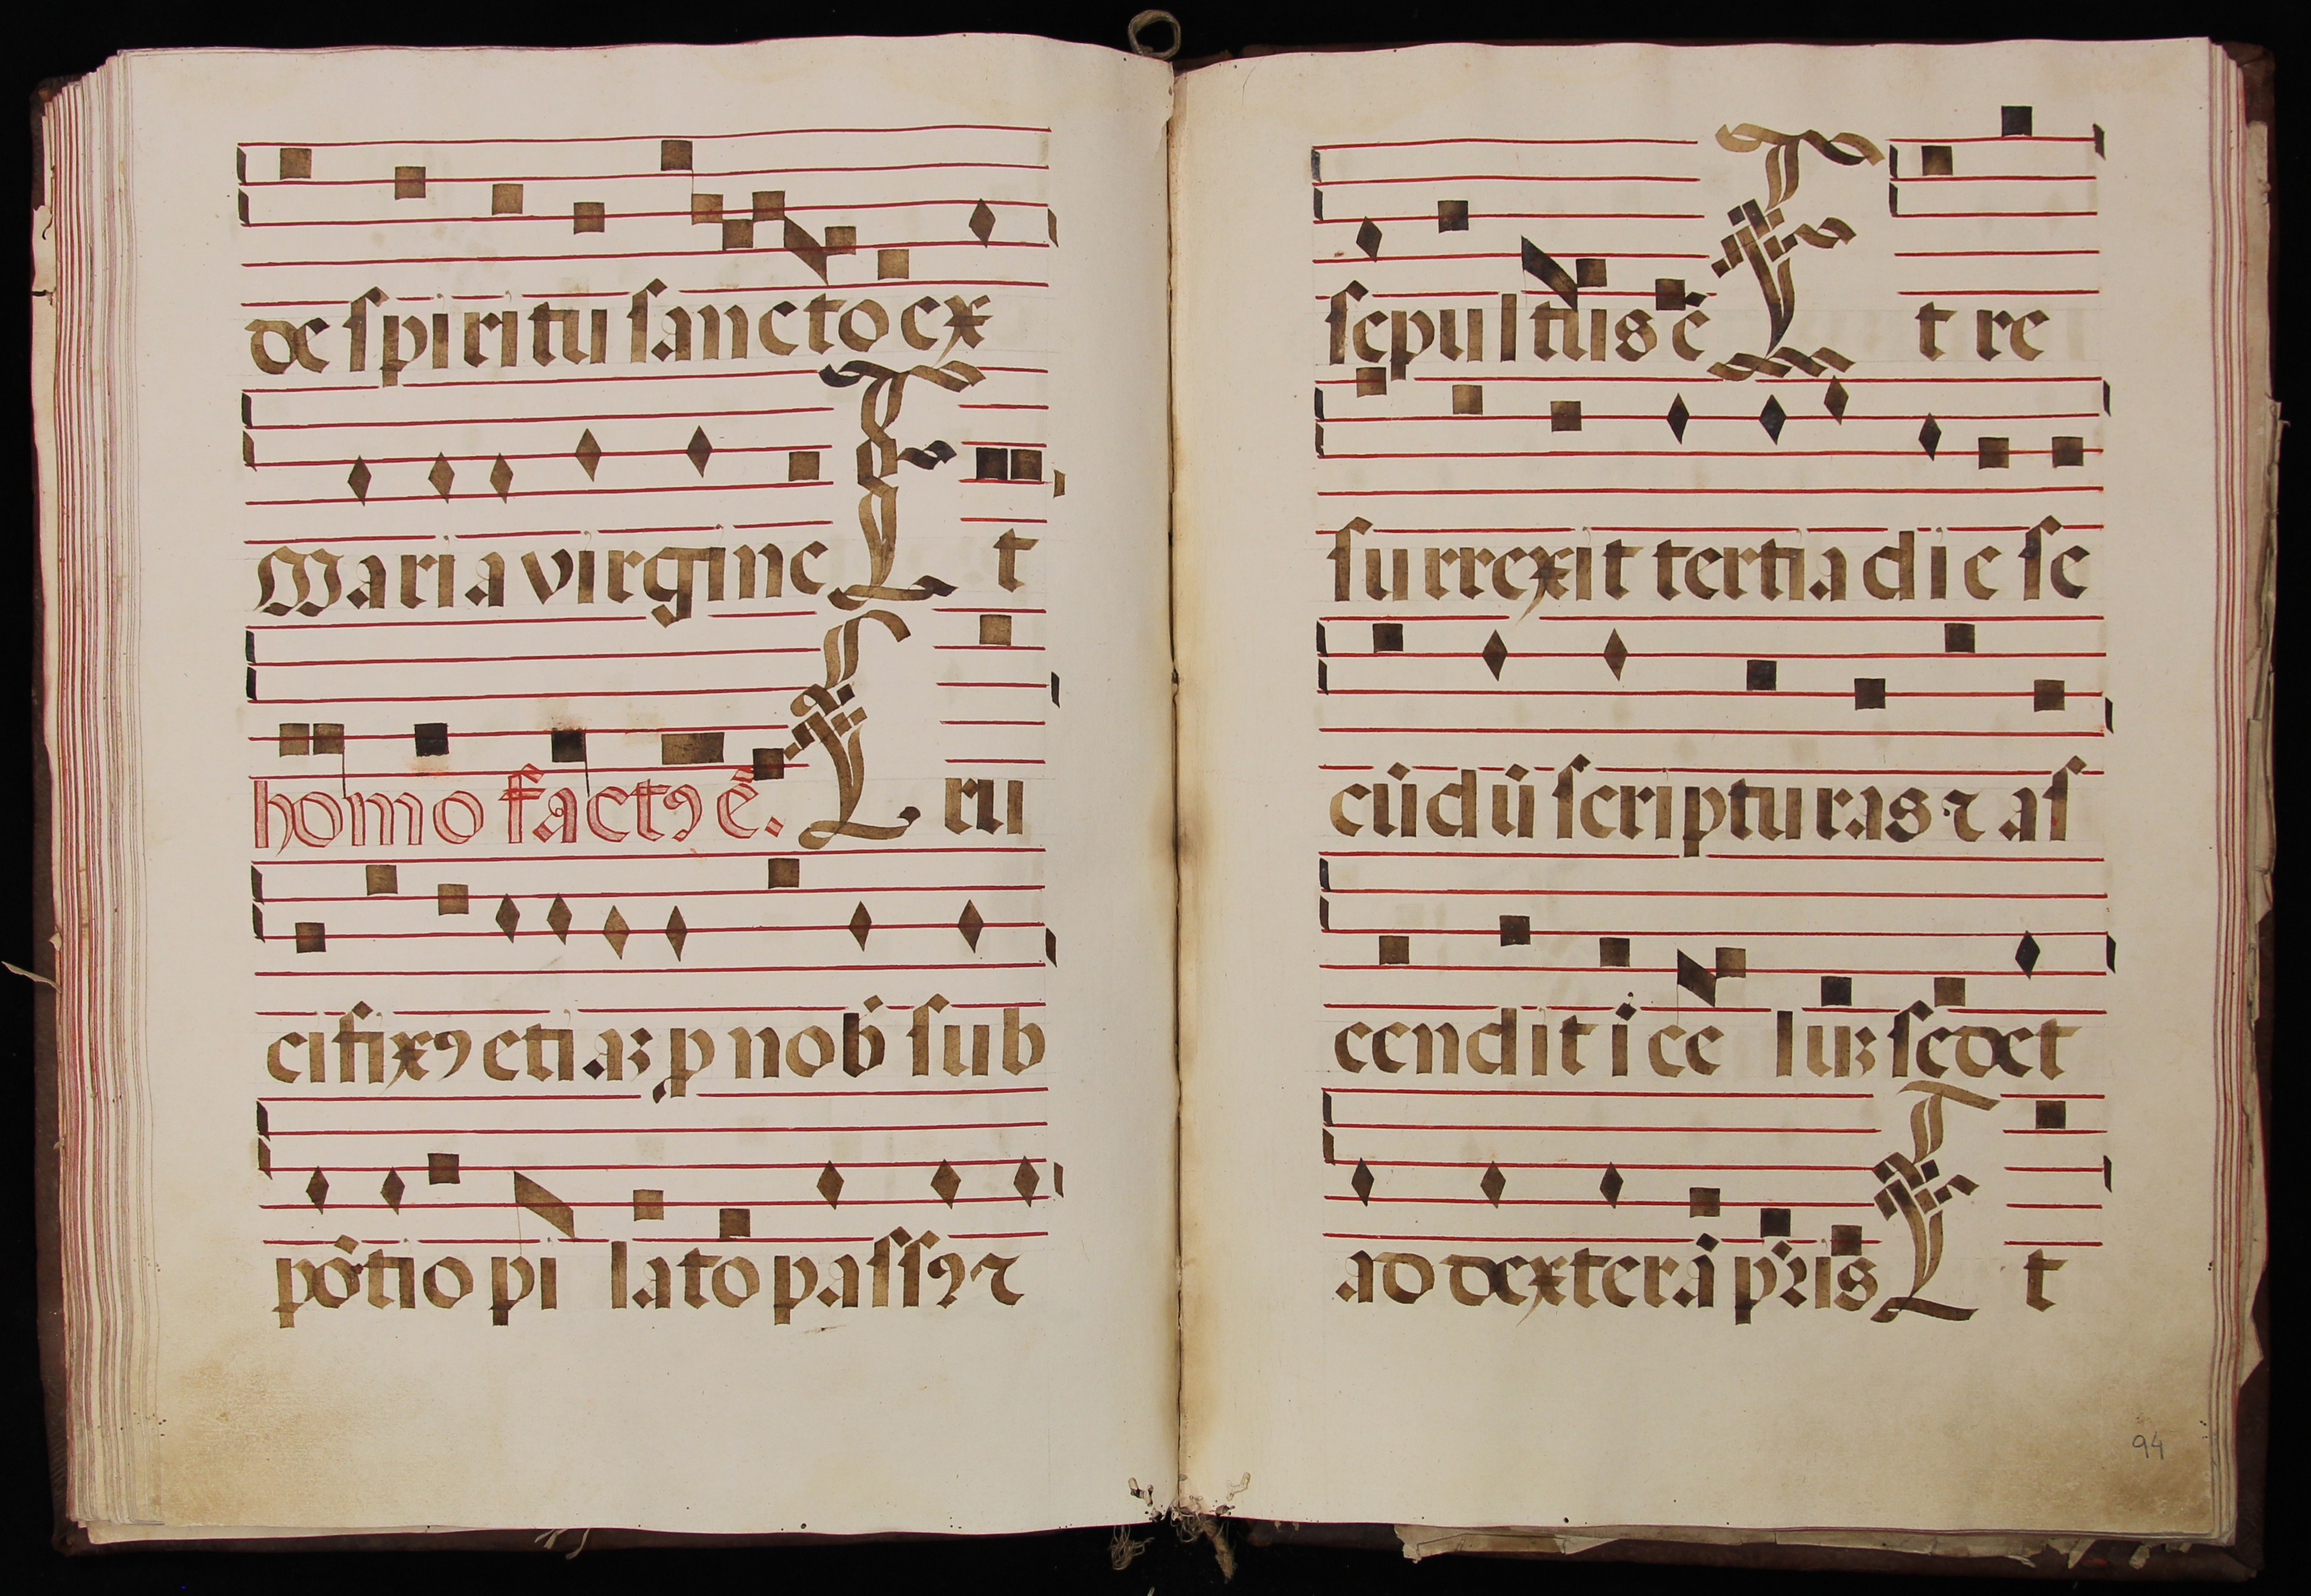 de spiritu sancto ex
Maria virgine Et
homo fact⁹ ē. Cru
cifix⁹ etiaꝫ ꝓ nob̄ sub
pōtio pilato pass⁹ ⁊
sepultus ē Et re
surrexit tertia die se
cūdū scripturas ⁊ as
cendit ī celuꝫ sedet
ad dexterā pr̄is Et
94